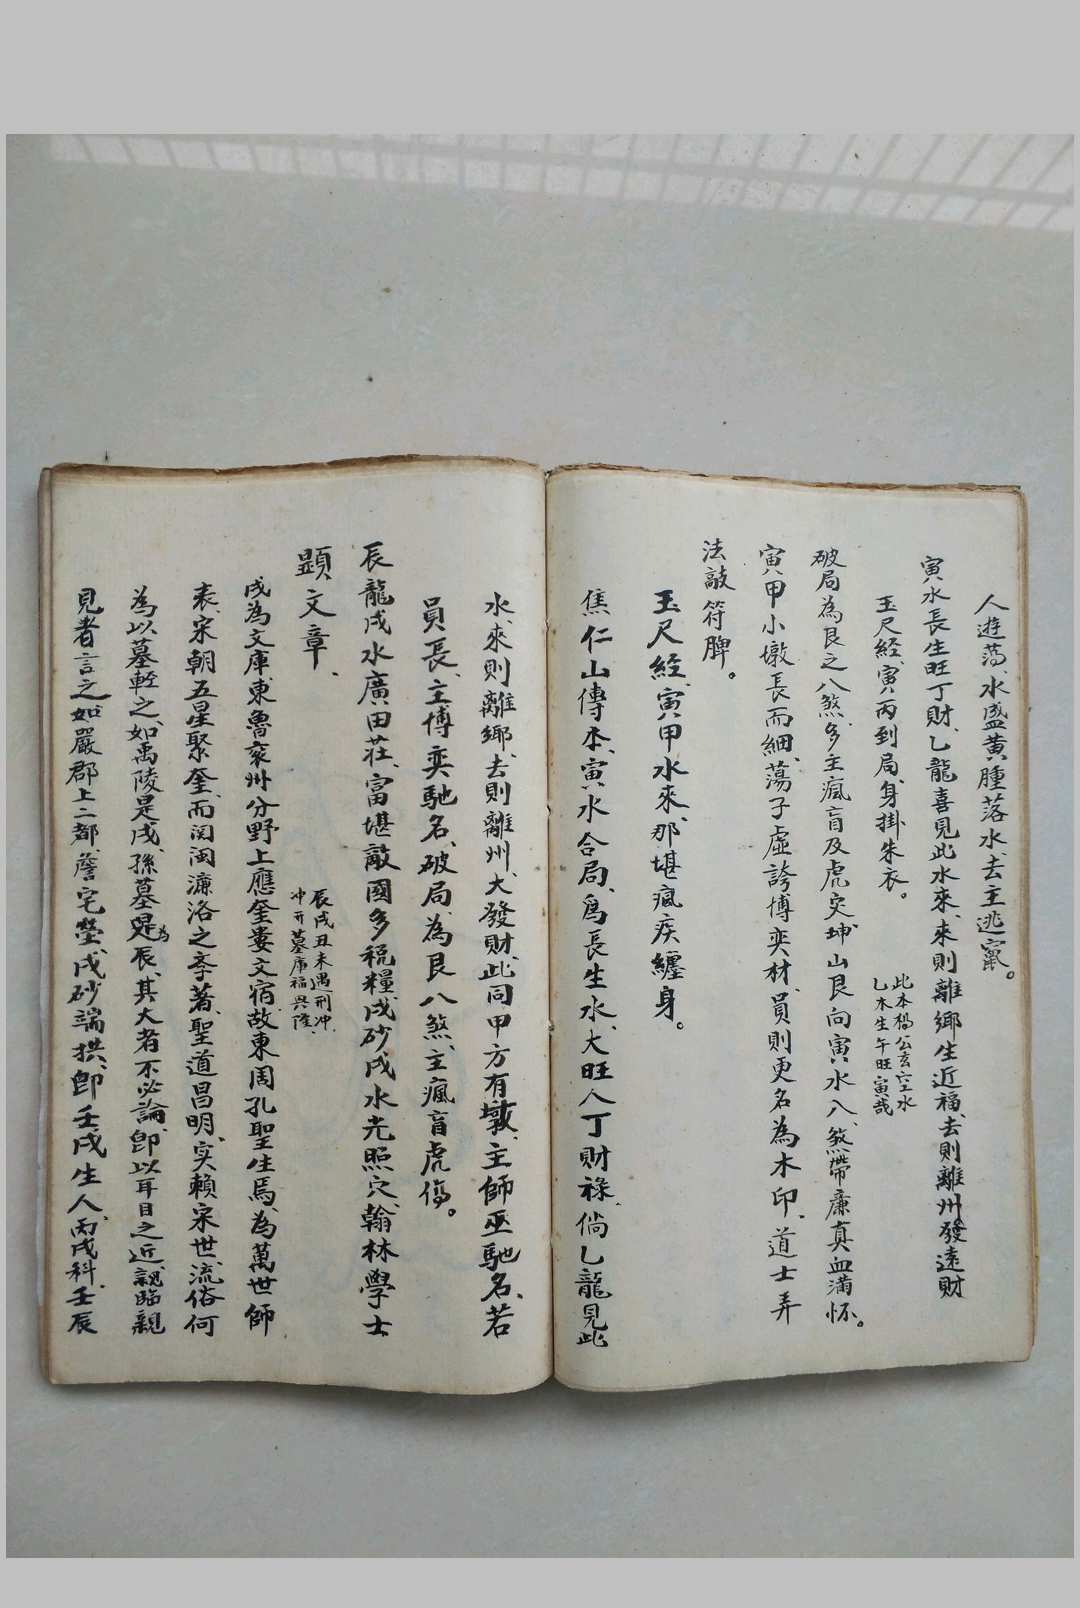 人遊蕩、水盛黄腫落水、去主逃竄。
寅水長生旺丁財、乙龍喜見此水來、來則離鄉生近福、去則離州發遠財
玉尺經、寅丙到局、身掛朱衣。
此本楊公玄空水
乙木生午旺寅哉
破局為艮之八煞、多主瘋盲及虎交坤山艮向寅水八、煞帶廉真血滿懷。
寅甲小墩長而細、蕩子虛誇博奕材、員則更名為木印、道士弄
法敲符脾。
玉尺經、寅甲水來、那堪瘋疾纏身。
焦仁山傳本、寅水合局、爲長生水、大旺人丁財祿、倘乙龍見此
水、來則離鄉、去則離州、大發財、此同甲方有墩、主師巫馳名、若
員長、主博奕馳名、破局、為艮八煞、主瘋盲虎傷。
辰龍戌水廣田莊、富堪敵國多稅糧、戌砂戌水光照穴、翰林學士
顯文章、
辰戌丑未遇刑冲、
冲开墓庫福興隆、
戌為文庫、東魯兖州分野上應奎婁文宿、故東周孔聖生焉、為萬世師
表、宋朝五星聚奎、而関閩濂洛之季著、聖道昌明、实賴宋世、流俗何
為以墓輕之、如禹陵是戌、孫墓是為辰、其大者不必論、卽以耳目之近、親臨親
見者言之、如嚴郡上二都、詹宅塋、戌砂端拱、卽壬戌生人、丙戌科、壬辰